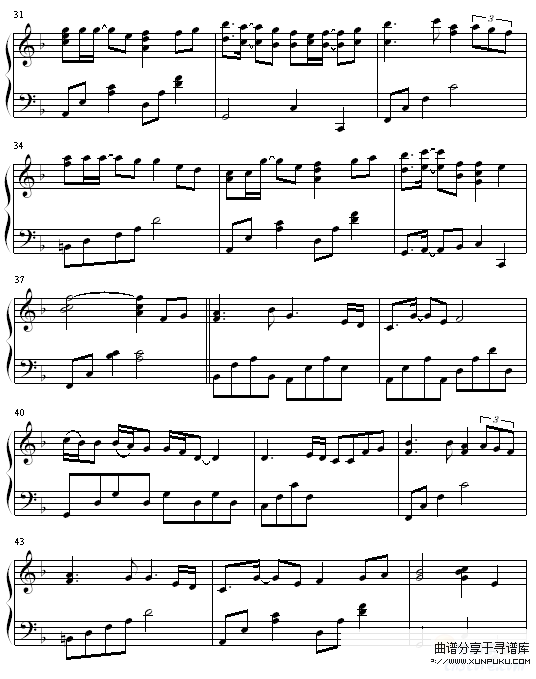 31
3
34
37
40
3
43
曲谱分享于寻谱库
WWW.XUNPUKU.COM